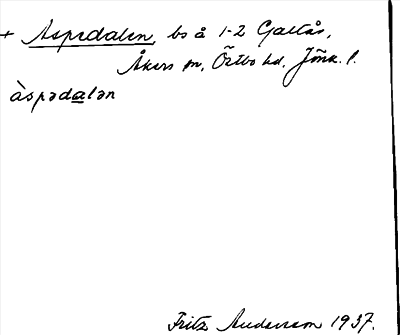 + Aspedalen, bs å 1-2 Galtås,
Åkers sn, Östbo hd, Jönk. l.
àspədalən
Fritz Andersson 1937.